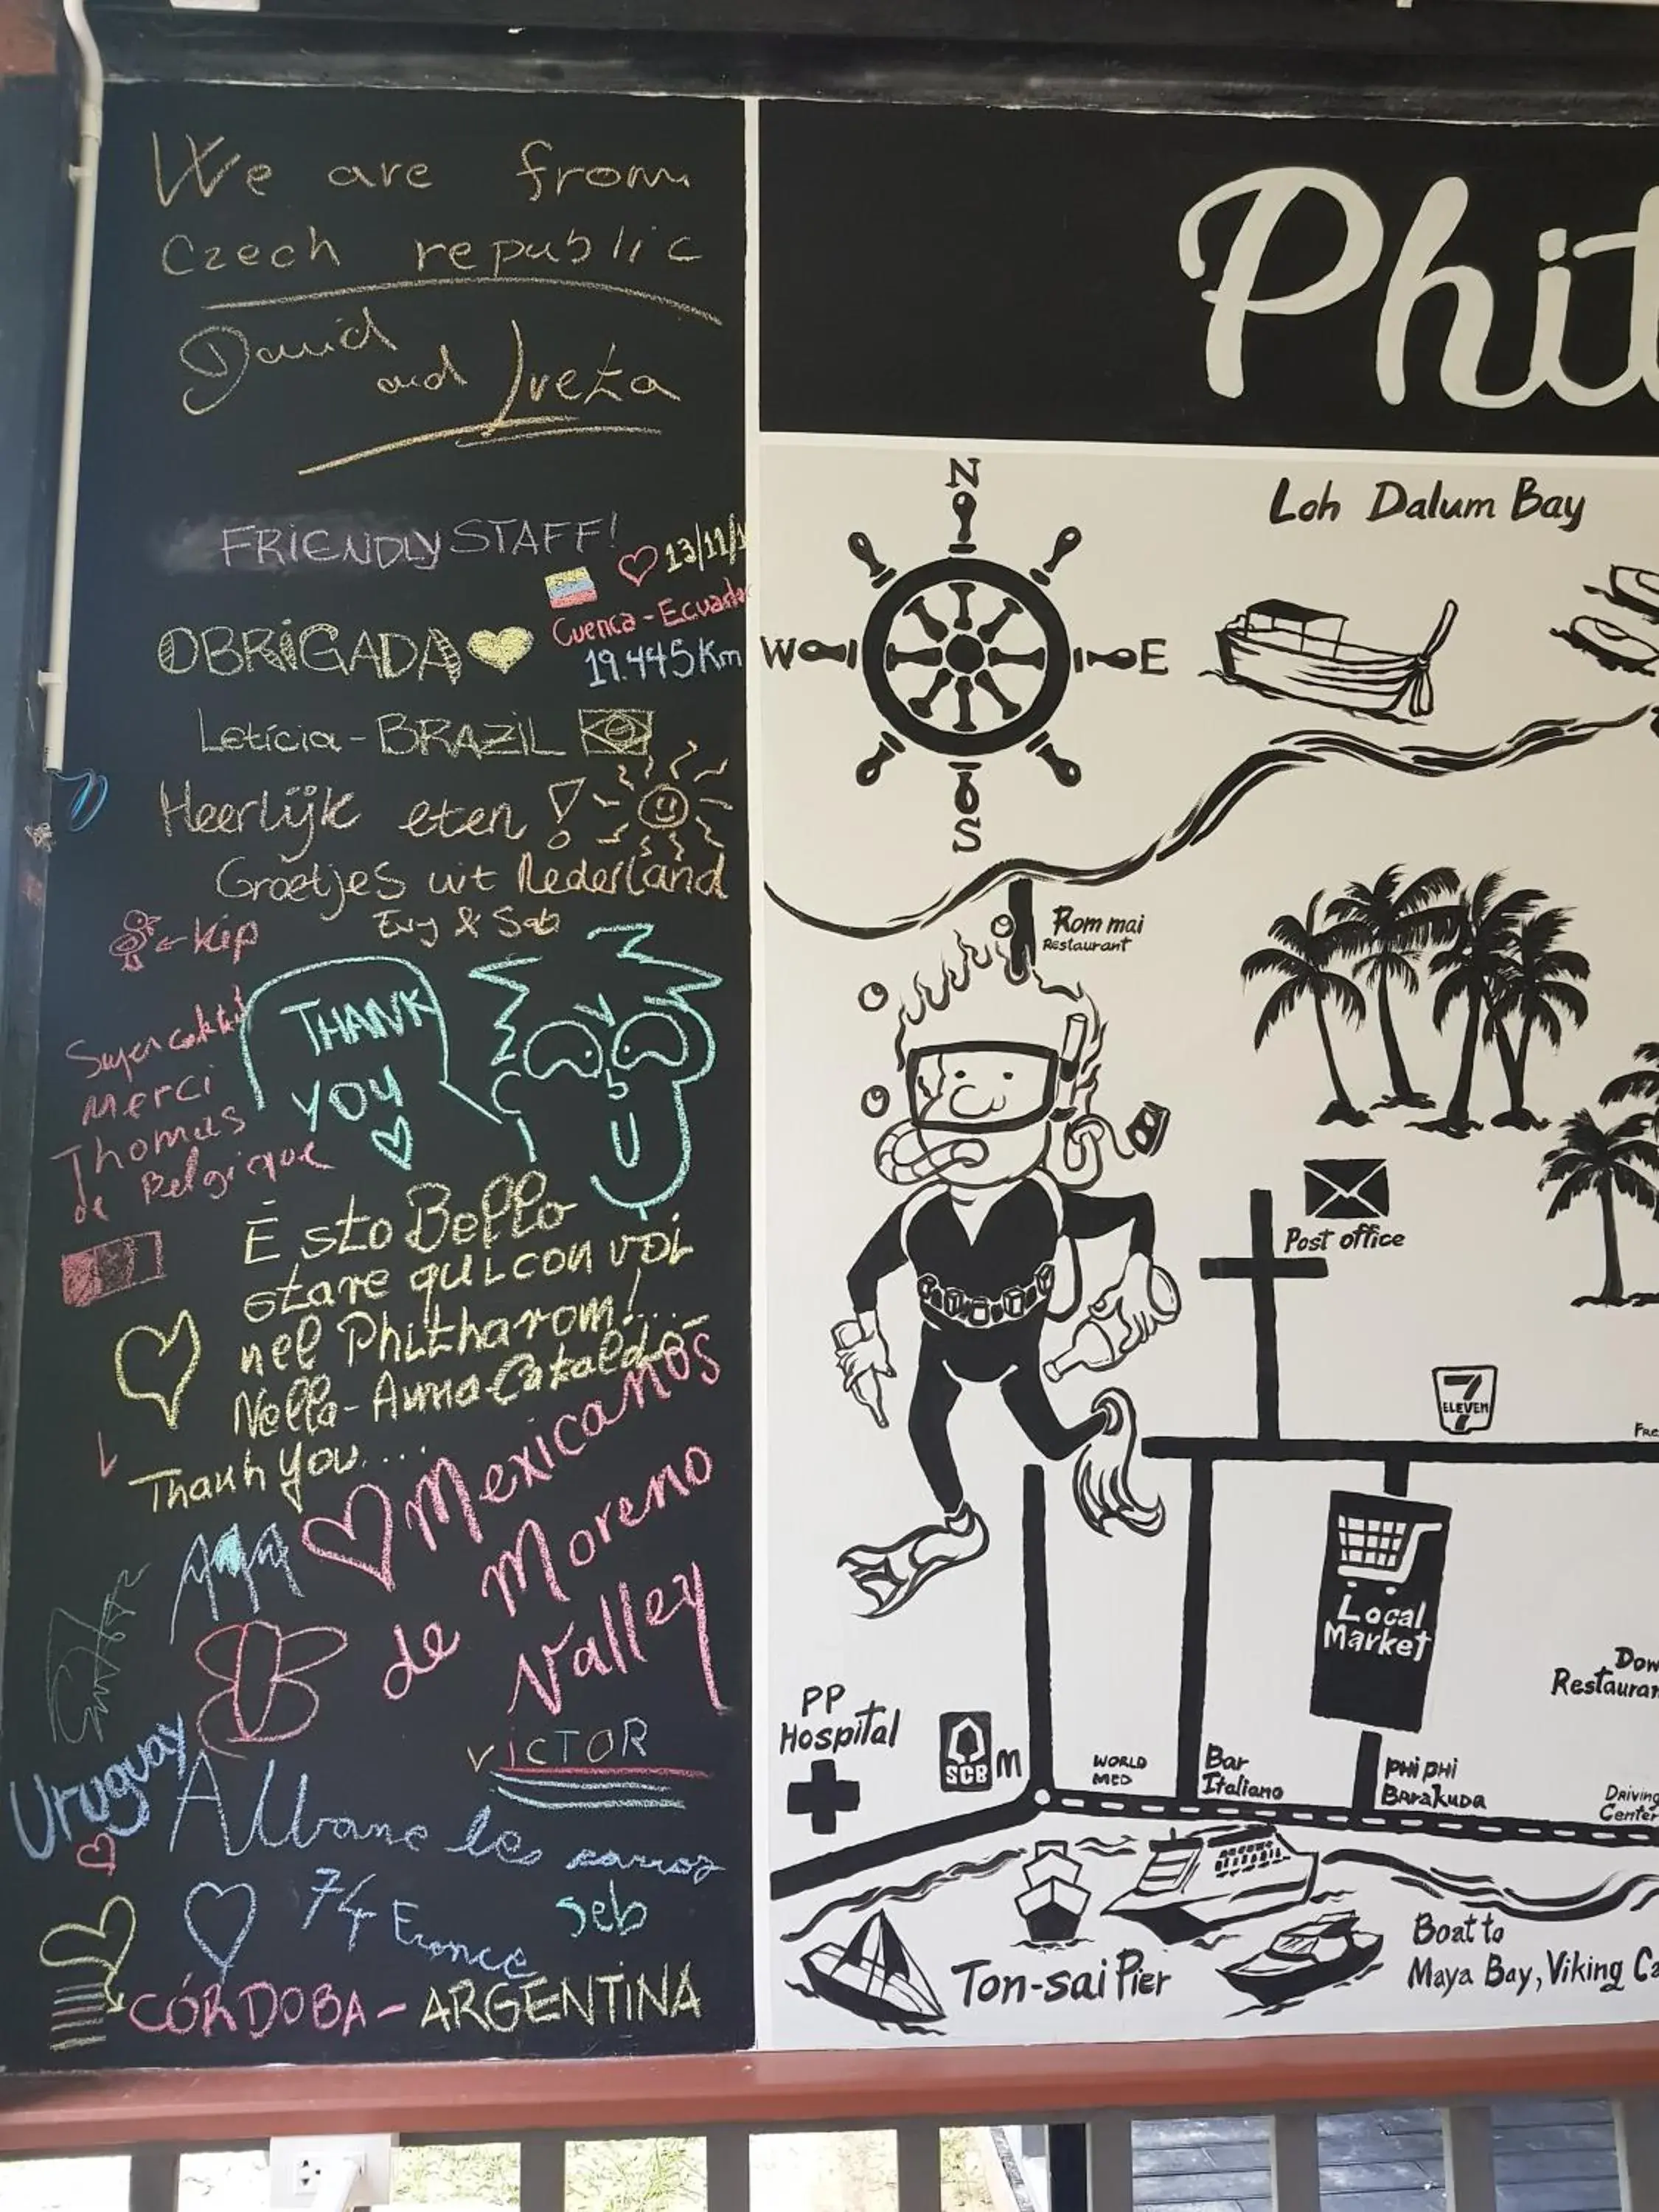 We are from
Czech republic
David
and Iveta
FRIENDLY STAFF!
13/11/1
Cuenca - Ecuador
19.445Km
OBRIGADA
Letícia - BRAZIL
Heerlijk eten !
Groetjes uit Nederland
Evy & Sab
← Kip
THANK
YOU
Merci
Thomas
de Belgique
È sto Bello
stare qui con voi
nel Phitharom!...
Nella - Anna - Cataldo
Thank You...
Mexicanos
de Moreno
Valley
VICTOR
Uruguay
Albane le
74 France
seb
CÓRDOBA - ARGENTINA
Phit
N
W
E
S
Loh Dalum Bay
Rom mai
Restaurant
Post office
7
ELEVEN
Fre
Local
Market
Dow
Restauran
PP
Hospital
SCB
M
WORLD
MED
Bar
Italiano
PHi pHi
BArakuDA
Driving
Center
Ton-sai Pier
Boat to
Maya Bay, Viking Ca